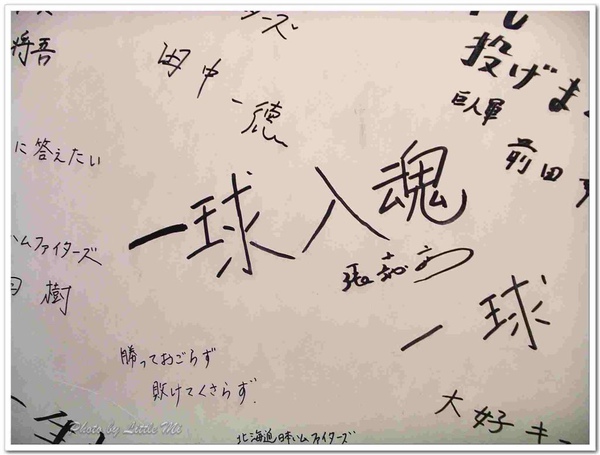 将吾
田中一徳
投げま
巨人軍
前田
に答えたい
一球入魂
ムファイターズ
樹
一球
勝っておごらず
敗けてくさらず。
大好キ
北海道日本ハムファイターズ
Photo by Little Mi